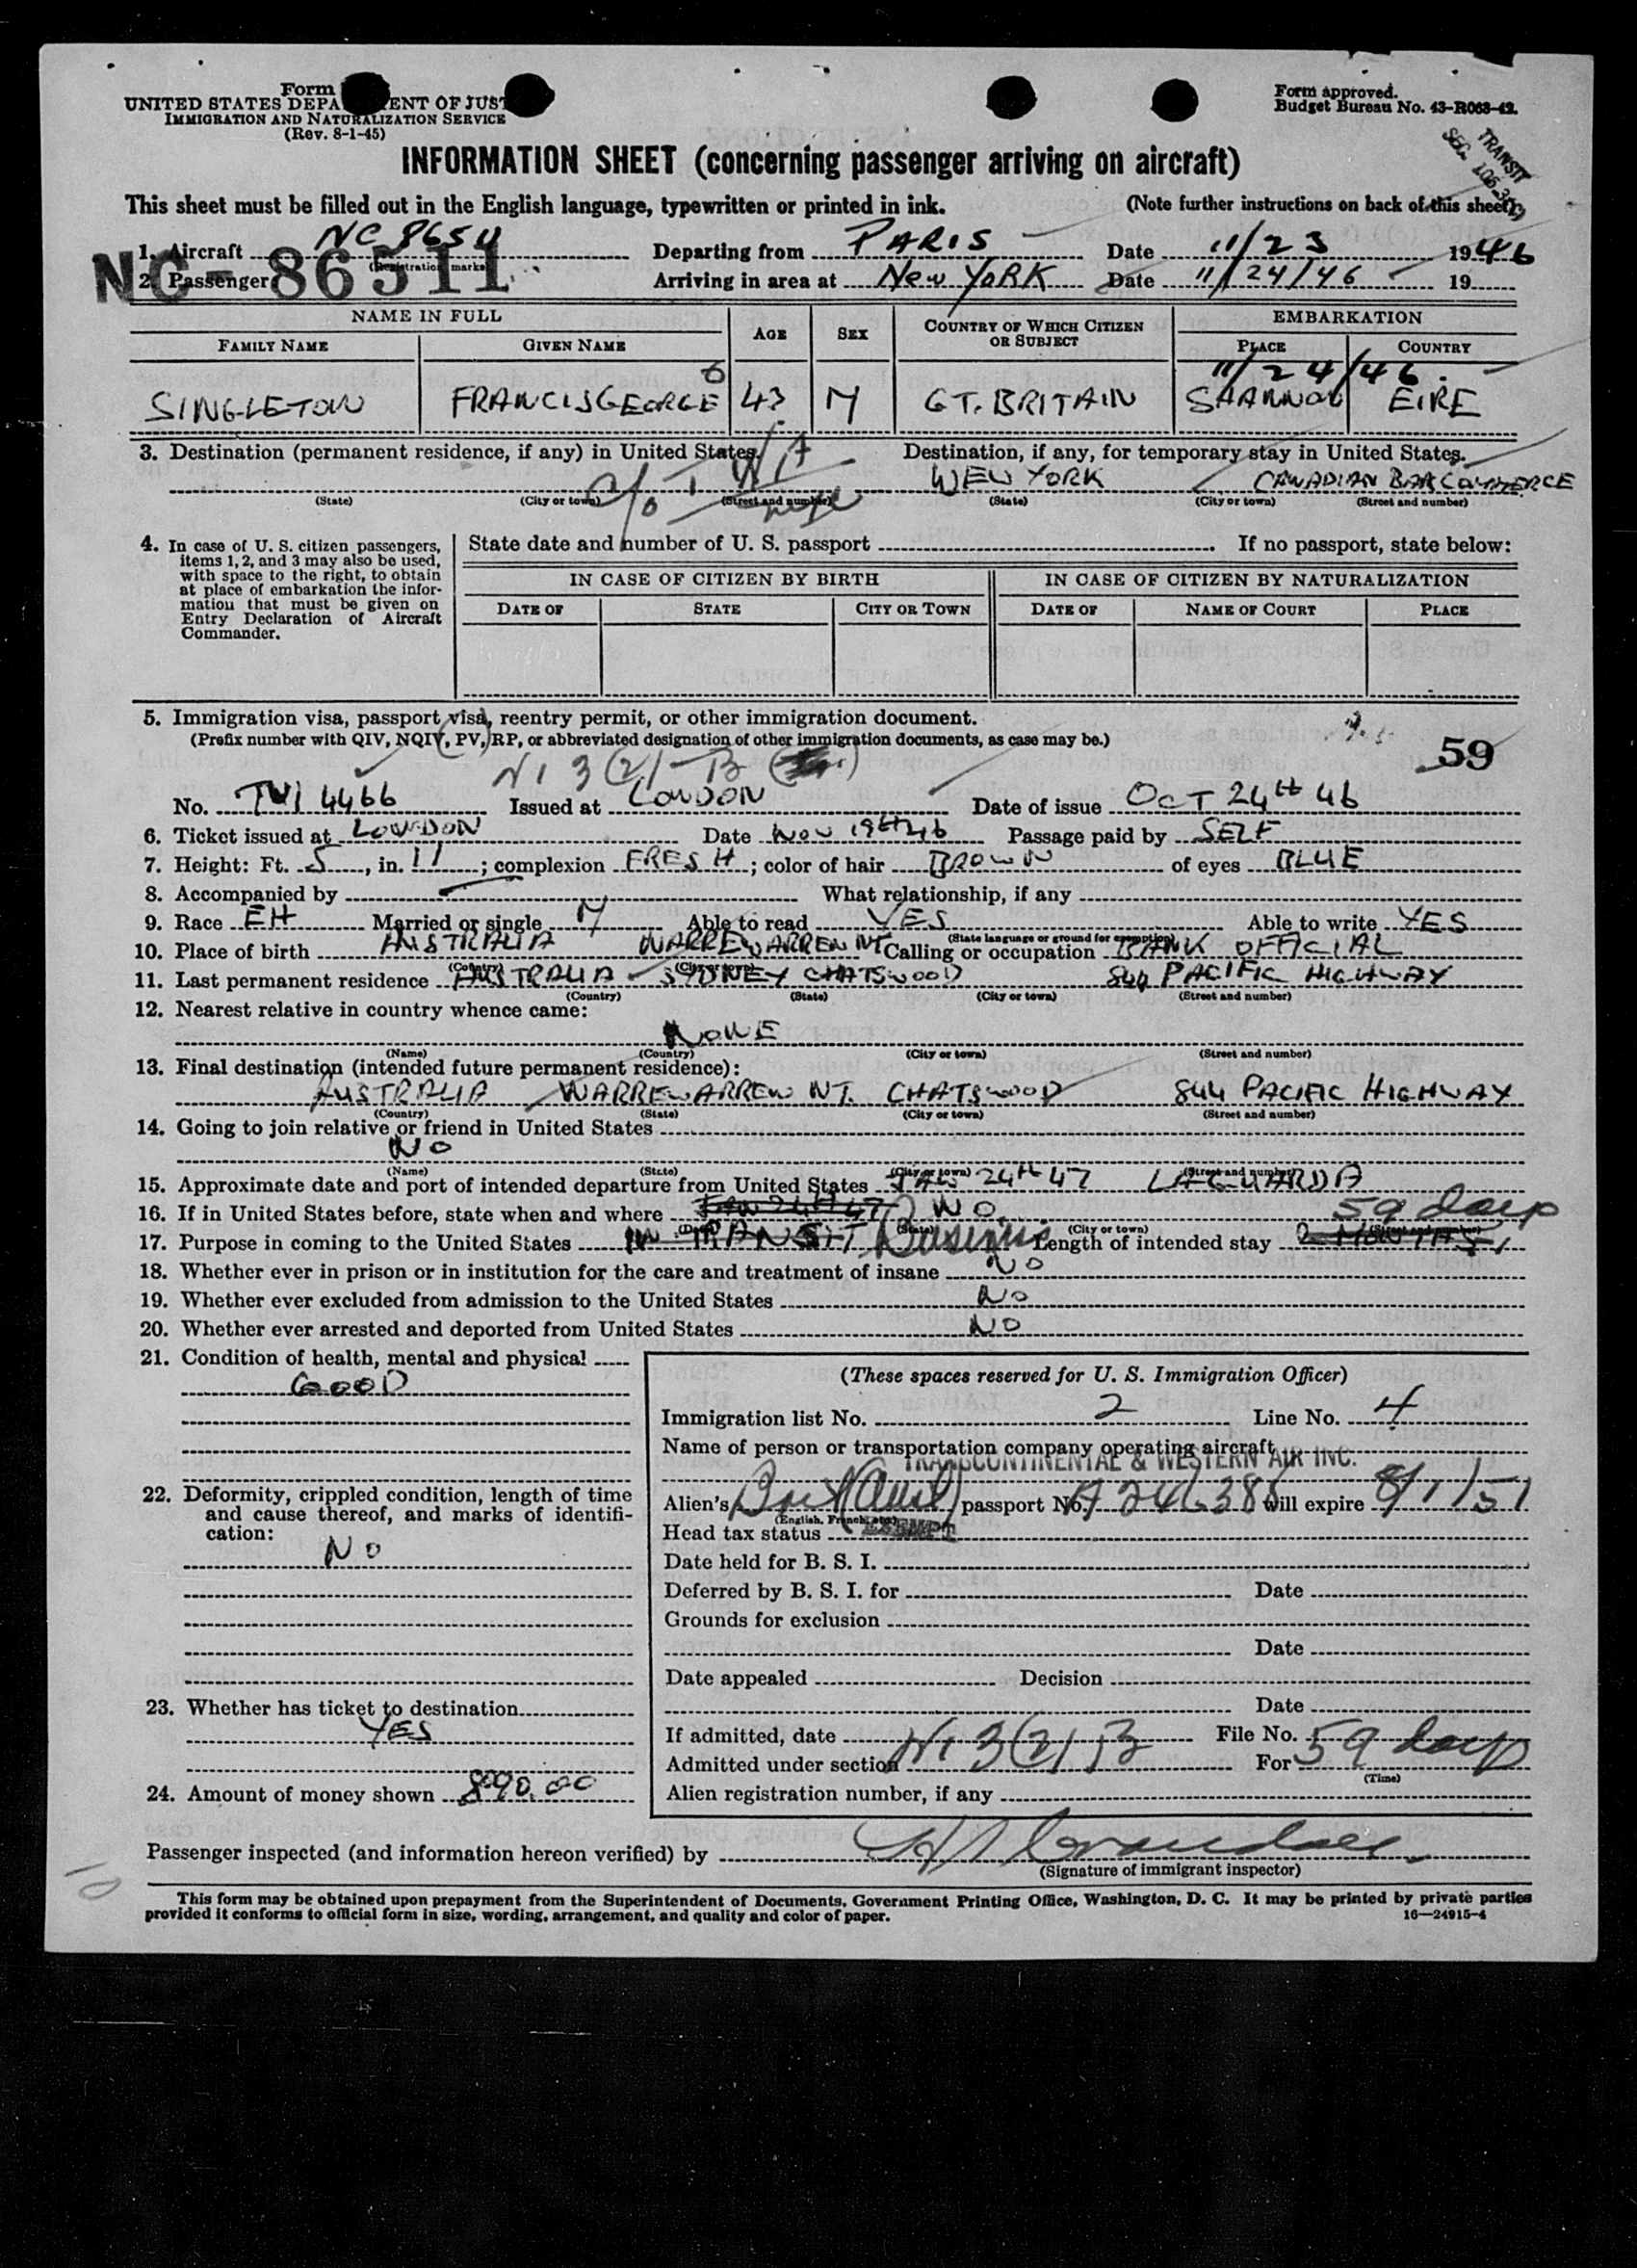 Form
UNITED STATES DEPA ENT OF JUST
IMMIGRATION AND NATURALIZATION SERVICE
(Rev. 8-1-45)
Form approved.
Budget Bureau No. 43-R063-42.
TRANSIT
SEC.
INFORMATION SHEET (concerning passenger arriving on aircraft)
This sheet must be filled out in the English language, typewritten or printed in ink. (Note further instructions on back of this sheet)
1. Aircraft NC 86511 Departing from PARIS Date 11/23 1946
(Registration marks)
NC-86511
2. Passenger Arriving in area at New YORK Date 11/24/46 19
NAME IN FULL AGE SEX COUNTRY OF WHICH CITIZEN OR SUBJECT EMBARKATION
FAMILY NAME GIVEN NAME PLACE COUNTRY
11/24/46.
SINGLETON FRANCIS GEORGE 43 M GT. BRITAIN SHANNON EIRE
3. Destination (permanent residence, if any) in United States. Destination, if any, for temporary stay in United States.
NEW YORK CANADIAN BANK COMMERCE
(State) (City or town) (Street and number) (State) (City or town) (Street and number)
4. In case of U. S. citizen passengers, items 1, 2, and 3 may also be used, with space to the right, to obtain at place of embarkation the information that must be given on Entry Declaration of Aircraft Commander.
State date and number of U. S. passport If no passport, state below:
IN CASE OF CITIZEN BY BIRTH IN CASE OF CITIZEN BY NATURALIZATION
DATE OF STATE CITY OR TOWN DATE OF NAME OF COURT PLACE
5. Immigration visa, passport visa, reentry permit, or other immigration document.
(Prefix number with QIV, NQIV, PV, RP, or abbreviated designation of other immigration documents, as case may be.)
59
3(2)-B
No. 4466 Issued at LONDON Date of issue OCT 24th 46
6. Ticket issued at LONDON Date NOV 19th 46 Passage paid by SELF
7. Height: Ft. 5, in. 11; complexion FRESH; color of hair BROWN of eyes BLUE
8. Accompanied by What relationship, if any
9. Race EH Married or single M Able to read YES Able to write YES
(State language or ground for exemption)
10. Place of birth AUSTRALIA WARREN Calling or occupation BANK OFFICIAL
(Country) (City or town)
11. Last permanent residence AUSTRALIA SYDNEY CHATSWOOD 844 PACIFIC HIGHWAY
(Country) (State) (City or town) (Street and number)
12. Nearest relative in country whence came:
NONE
(Name) (Country) (City or town) (Street and number)
13. Final destination (intended future permanent residence):
AUSTRALIA CHATSWOOD 844 PACIFIC HIGHWAY
(Country) (State) (City or town) (Street and number)
14. Going to join relative or friend in United States
NO
(Name) (State) (City or town) (Street and number)
15. Approximate date and port of intended departure from United States JAN 24th 47 LAGUARDIA
16. If in United States before, state when and where JAN 24th 47 NO.
(Date) (State) (City or town) (Street and number)
59 days
17. Purpose in coming to the United States IN TRANSIT Business Length of intended stay 2 MONTHS
18. Whether ever in prison or in institution for the care and treatment of insane NO
19. Whether ever excluded from admission to the United States NO
20. Whether ever arrested and deported from United States NO
21. Condition of health, mental and physical
GOOD
(These spaces reserved for U. S. Immigration Officer)
Immigration list No. 2 Line No. 4
Name of person or transportation company operating aircraft
TRANSCONTINENTAL & WESTERN AIR INC.
22. Deformity, crippled condition, length of time and cause thereof, and marks of identification:
NO
Alien's Brit (Aust) passport No. A246388 will expire 8/1/51
(English, French, etc.)
Head tax status EXEMPT
Date held for B. S. I.
Deferred by B. S. I. for Date
Grounds for exclusion
Date
Date appealed Decision
Date
23. Whether has ticket to destination
YES
If admitted, date File No.
Admitted under section 3(2) B For 59 days
(Time)
24. Amount of money shown 890.00
Alien registration number, if any
Passenger inspected (and information hereon verified) by
(Signature of immigrant inspector)
This form may be obtained upon prepayment from the Superintendent of Documents, Government Printing Office, Washington, D. C. It may be printed by private parties
provided it conforms to official form in size, wording, arrangement, and quality and color of paper. 16—24915-4